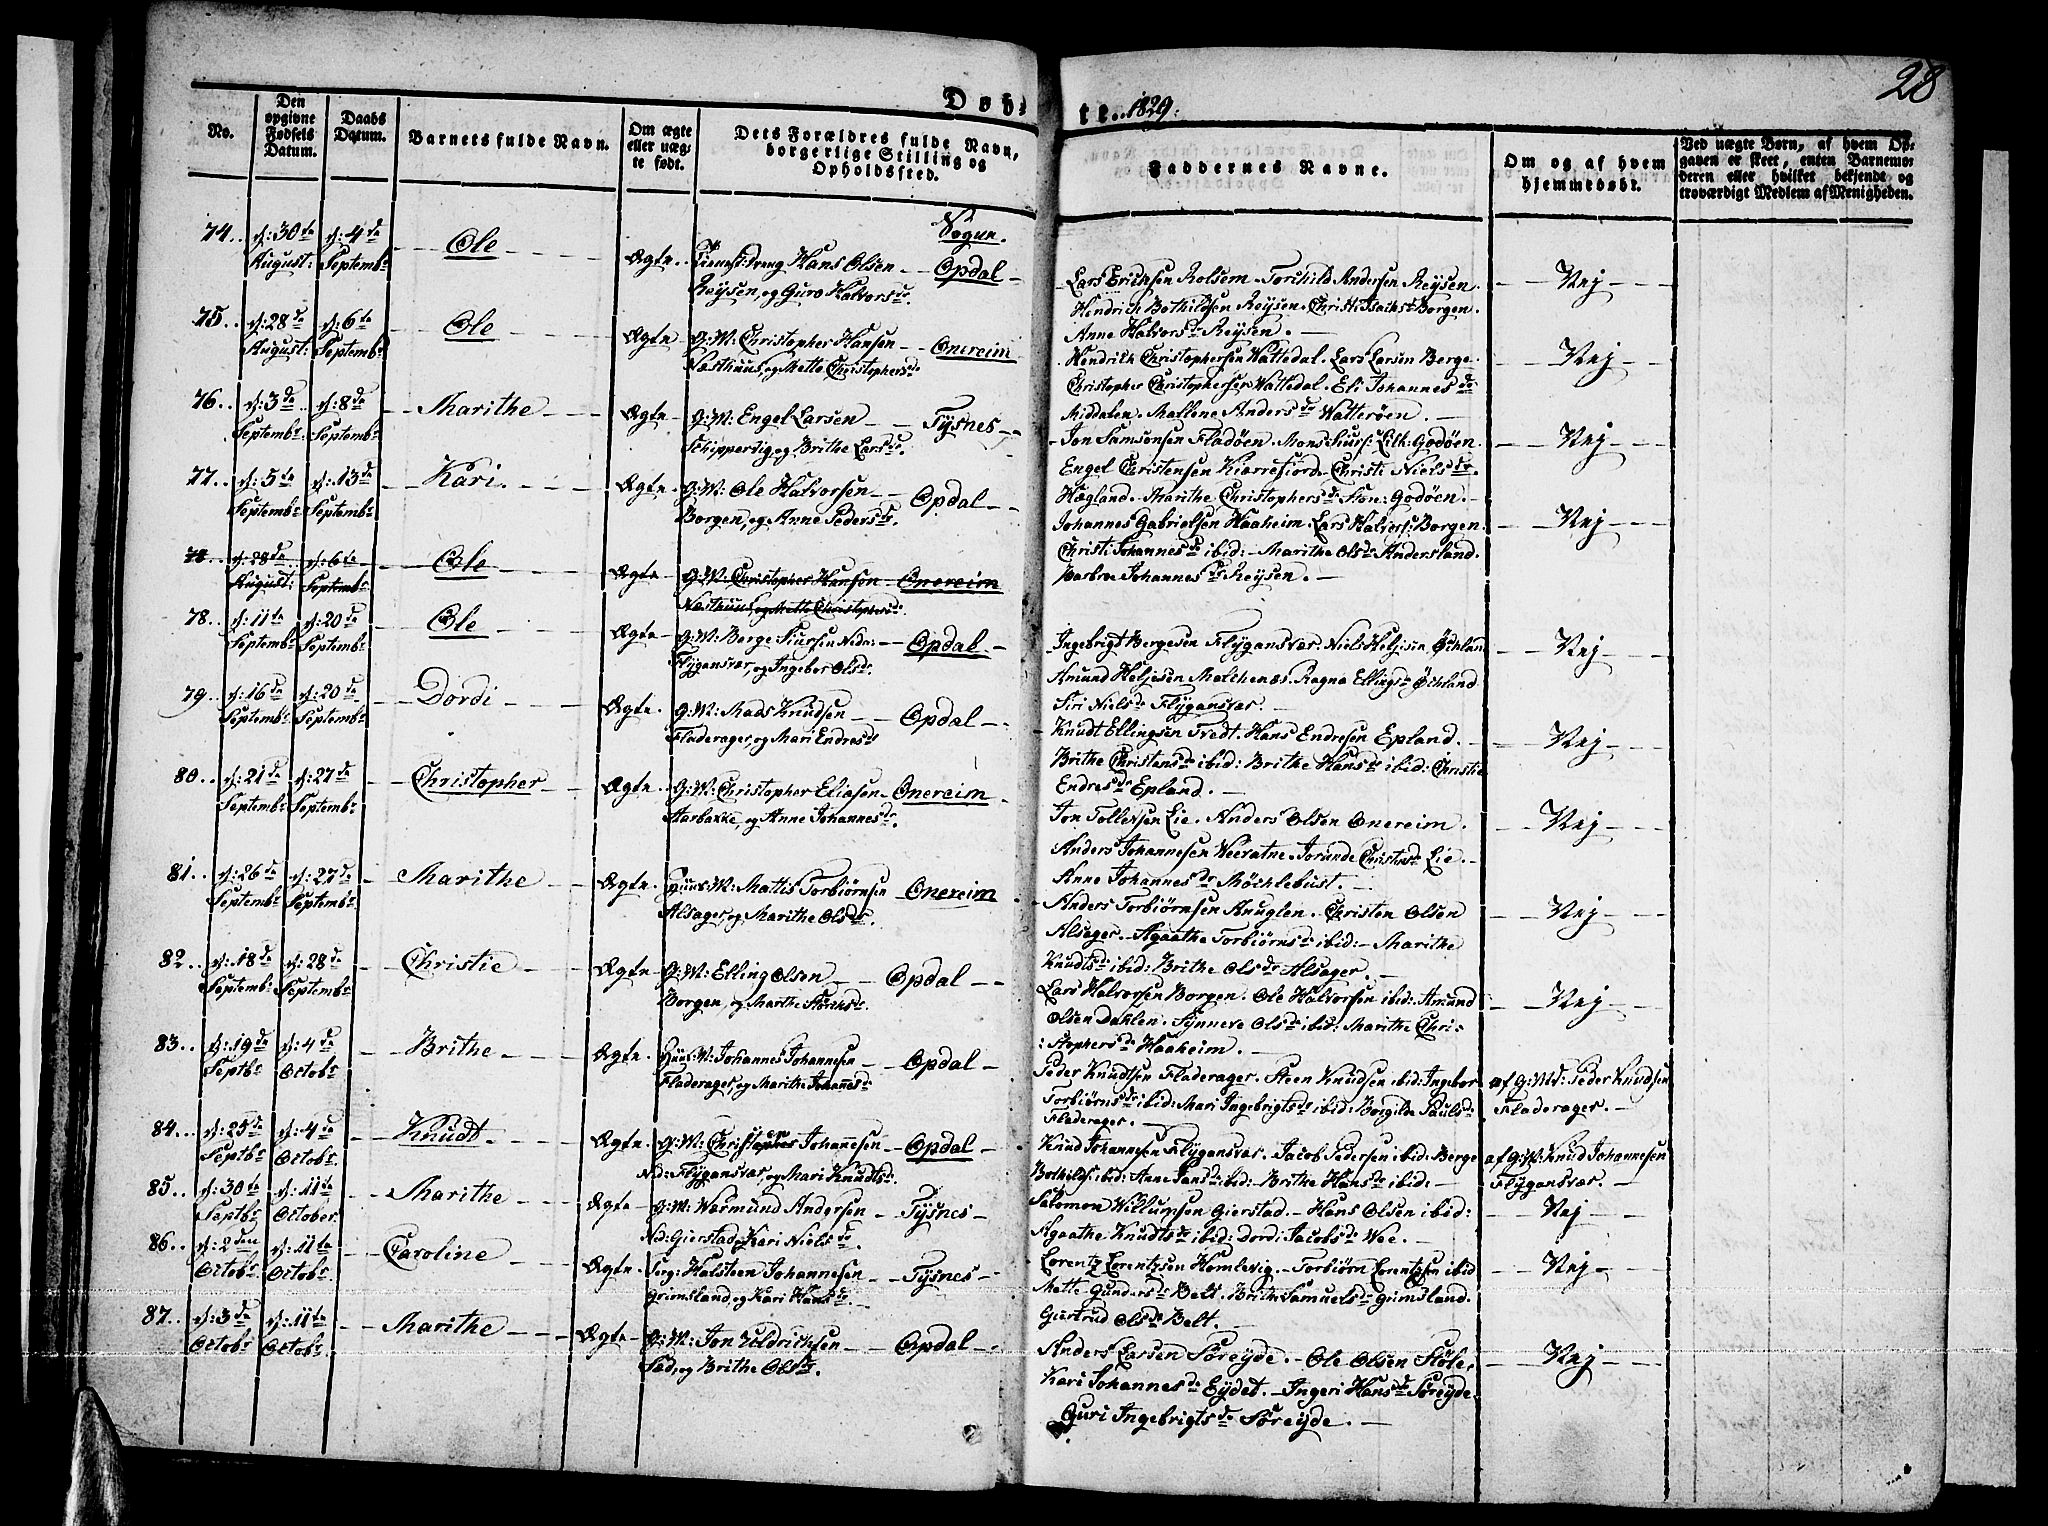 28
Døbte. 1829.
No.
Den opgivne Fødsels Datum.
Daabs Datum.
Barnets fulde Navn.
Om ægte eller uægte født.
Dets Forældres fulde Navn, borgerlige Stilling og Opholdssted.
Faddernes Navne.
Om og af hvem hjemmedøbt.
Ved uægte Børn, af hvem Opgaven er skeet, enten Barnemoderen eller hvilket bekjendt og troværdigt Medlem af Menigheden.
Sogn.
74.. d: 30te August: d: 4de Septembr Ole Ægte. Tienestdreng Hans Olsen Opdal
Reysen, og Guro Halvorsdr.
Lars Ericksen Rolsem. Torchild Andersen Reysen. Nej
Hendrich Bothildsen Reysen. Christi Isachsdr Borgen.
Anne Halvorsdr Reysen.
75.. d: 28de August: d: 6te Septembr Ole Ægte G: M: Christopher Hansen Onereim
Næsthuus, og Mette Christophersdr
Hendrik Christophersen Wattedal. Lars Larsen Berge. Nej
Christopher Christophersen Wattedal. Eli Johannesdr
Middalen. Mallene Andersdr Watterøen.
76.. d: 3de Septembr d: 8de Septembr Marithe Ægte G: M: Engel Larsen Tysnes
Schippervig, og Brithe Larsdr.
Jon Samsonsen Fladøen. Mons Siurs: Lill: Godøen. Nej
Engel Christensen Kiærrefiord. Christi Nielsdr.
Hægland. Marithe Christophersdr Ston: Godøen.
77.. d: 5te Septembr d: 13de Septembr Kari. Ægte. G: M: Ole Halvorsen Opdal
Borgen, og Anne Pedersdr.
Johannes Gabrielsen Haaheim. Lars Halvors: Borgen. Nej
Christi Johannesdr ibid: Marithe Olsdr Andersland.
Barbro Johannesdr Reysen.
78.. d: 28de August: d: 6te Septembr Ole Ægte G: M: Christopher Hansen Onereim
Næsthuus, og Mette Christophersdr
78.. d: 11te Septembr d: 20de Septembr Ole Ægte G: M: Børge Siursen Nedre: Opdal.
Flygansvær, og Ingebor Olsdr.
Ingebrigt Børgesen Flygansvær. Niels Heljesen Øchland Nej
Amund Heljesen Malchenæs. Ragna Ellingsdr Øchland
Siri Nielsdr Flygansvær.
79.. d: 16de Septembr d: 20de Septembr Dordi Ægte. G: M: Mads Knudsen Opdal
Fladerager, og Mari Endresdr
Knudt Ellingsen Tvedt. Hans Endresen Epland. Nej
Brithe Christensdr ibid: Brithe Hansdr ibid: Christie
Endresdr Epland.
80.. d: 21de Septembr d: 27de Septembr Christopher Ægte. G: M: Christopher Eliasen Onereim
Aarbakke, og Anne Johannesdr.
Jon Tollefsen Lie. Anders Olsen Onereim. Nej
Anders Johannesen Weeratne. Jorunde Christensdr Lie.
Anne Johannesdr Møchlebust.
81.. d: 26de Septembr d: 27de Septembr Marithe Ægte. Huus: M: Mattis Torbiørnsen Onereim
Alsager, og Marithe Olsdr.
Anders Torbiørnsen Anuglen. Christen Olsen Nej
Alsager. Agaathe Torbiørnsdr ibid: Marithe
Knudtsdr ibid: Brithe Olsdr Alsager.
82.. d: 18de Septembr d: 28de Septembr Christie Ægte G: M: Elling Olsen Opdal
Borgen, og Marthe
Lars Halvorsen Borgen. Ole Halvorsen ibid: Amund Nej
Olsen Dahlen. Synneve Olsdr ibid: Marithe Chri-
stophersdr Haaheim.
83.. d: 19de Septbr d: 4de Octobr Brithe Ægte. Huus: M: Johannes Johannesen Opdal
Fladerager, og Marithe Johannesdr
Peder Knudtsen Fladerager. Steen Knudsen ibid: Ingebor af G: Md: Peder Knudsen
Torbiørnsdr ibid: Mari Ingebrigtsdr ibid: Borgilda Paulsdr Fladerager.
Fladerager.
84.. d: 25de Septbr d: 4de Octobr. Knudt Ægte G: M: Christopher Johannesen Opdal
Ned: Flygansvær, og Mari Knudtsdr.
Knud Johannesen Flygansvær. Jacob Pedersen ibid: Børge af G: M: Knud Johannesen
Bothilds: ibid: Anne Jansdr ibid: Brithe Hansdr ibid: Flygansvær.
85.. d: 30te Septbr d: 11te October. Marithe Ægte G: M: Wærmund Andersen Tysnes
Ned: Gierstad, og Kari Nielsdr
Salomon Willumsen Gierstad. Hans Olsen ibid: Nej
Agaathe Knudtsdr ibid: Dordi Jacobsdr Wee.
86.. d: 2den Octobr d: 11te Octobr. Caroline Ægte Serg: Halsteen Johannesen Tysnes
Grimsland, og Kari Hansdr.
Lorentz Lorentzsen Homlevig. Torbiørn Lorentzsen ibid Nej
Mette Gundersdr Belt. Brithe Samuelsdr Grimsland.
Giertrud Olsdr Belt.
87.. d: 3de Octobr d: 11te Octobr. Marithe Ægte G: M: Jon Uldrichsen Opdal
Sad, og Brithe Olsdr.
Anders Larsen Søreyde. Ole Olsen Støle. Nej
Kari Johannesdr Eydet. Ingeri Hansdr Søreyde.
Guri Ingebrigtsdr Søreyde.